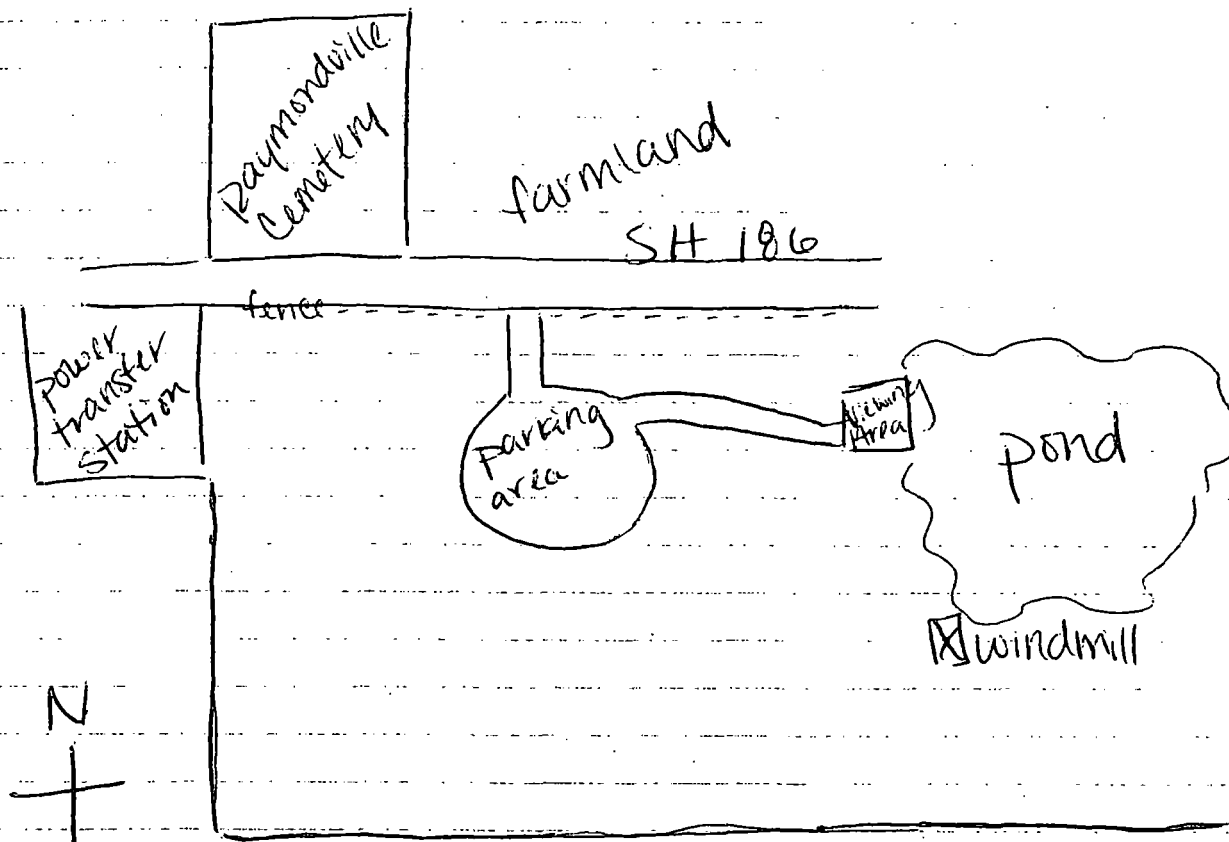 Raymondville
Cemetery
farmland
SH 186
fence
power
transfer
station
parking
area
Viewing
Area
pond
windmill
N